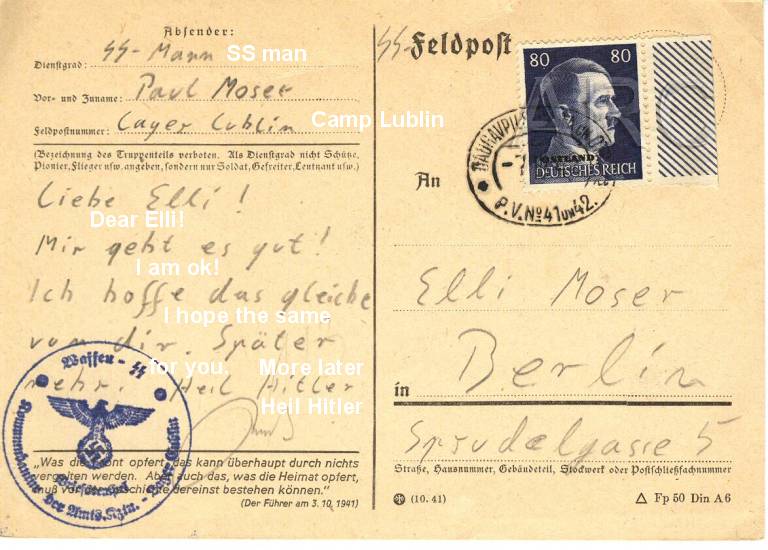 Absender:
SS-Mann SS man
Dienstgrad:
Paul Moser
Vor- und Zuname:
Lager Lublin Camp Lublin
Feldpostnummer:
(Bezeichnung des Truppenteils verboten. Als Dienstgrad nicht Schütze,
Pionier, Flieger usw. angeben, sondern nur Soldat, Gefreiter, Leutnant usw.)
Liebe Elli!
Dear Elli!
Mir geht es gut!
I am ok!
Ich hoffe das gleiche
I hope the same
von dir. Später
for you. More later
mehr. Heil Hitler
Heil Hitler
„Was die Front opfert, das kann überhaupt durch nichts
vergolten werden. Aber auch das, was die Heimat opfert,
muß vor der Geschichte dereinst bestehen können."
(Der Führer am 3. 10. 1941)
Waffen-SS
SS-Feldpost
80 80
OSTLAND
DEUTSCHES REICH
P.V. No 41 un 42.
An
Elli Moser
Berlin
in
Sprudelgasse 5
Straße, Hausnummer, Gebäudeteil, Stockwerk oder Postschließfachnummer
(10. 41)
Fp 50 Din A 6